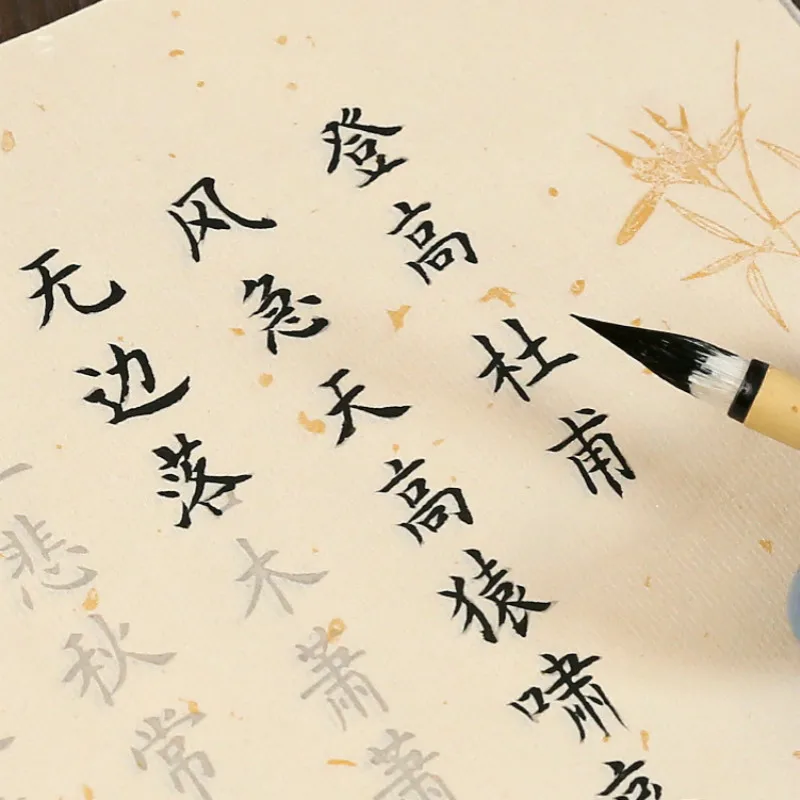 登高 杜甫
风急天高猿啸哀
无边落木萧萧
悲秋常